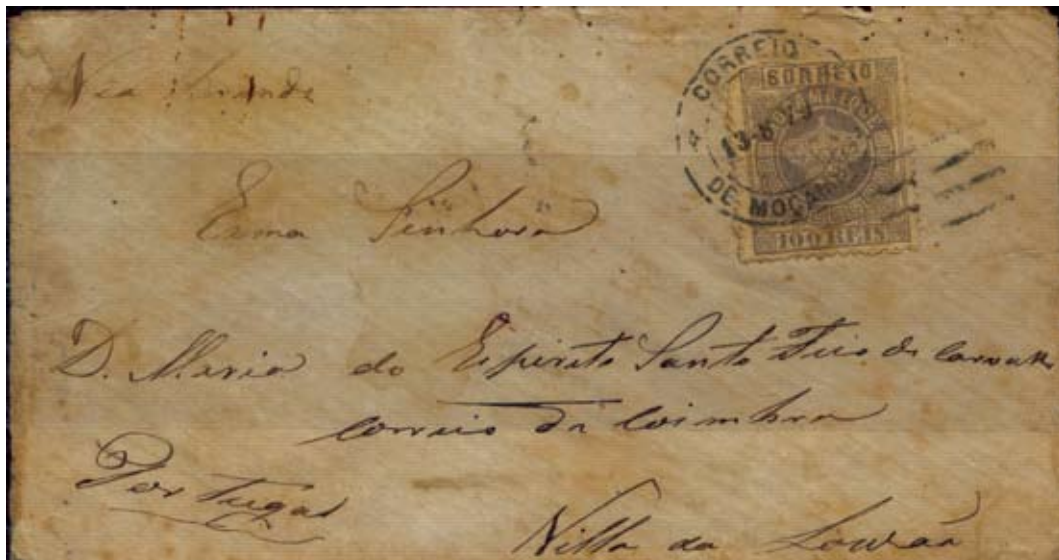 Via
CORREIO
DE MOÇAMBIQUE
CORREIO
MOÇAMBIQUE
100 REIS
Exma Senhora
D. Maria do Espirito Santo de
Correio da Coimbra
Portugal
Villa da Louzãa